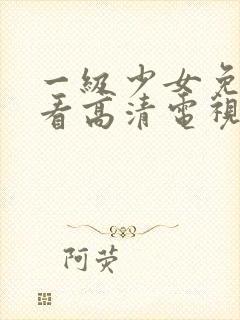 一級少女免
看高清電視
阿荧